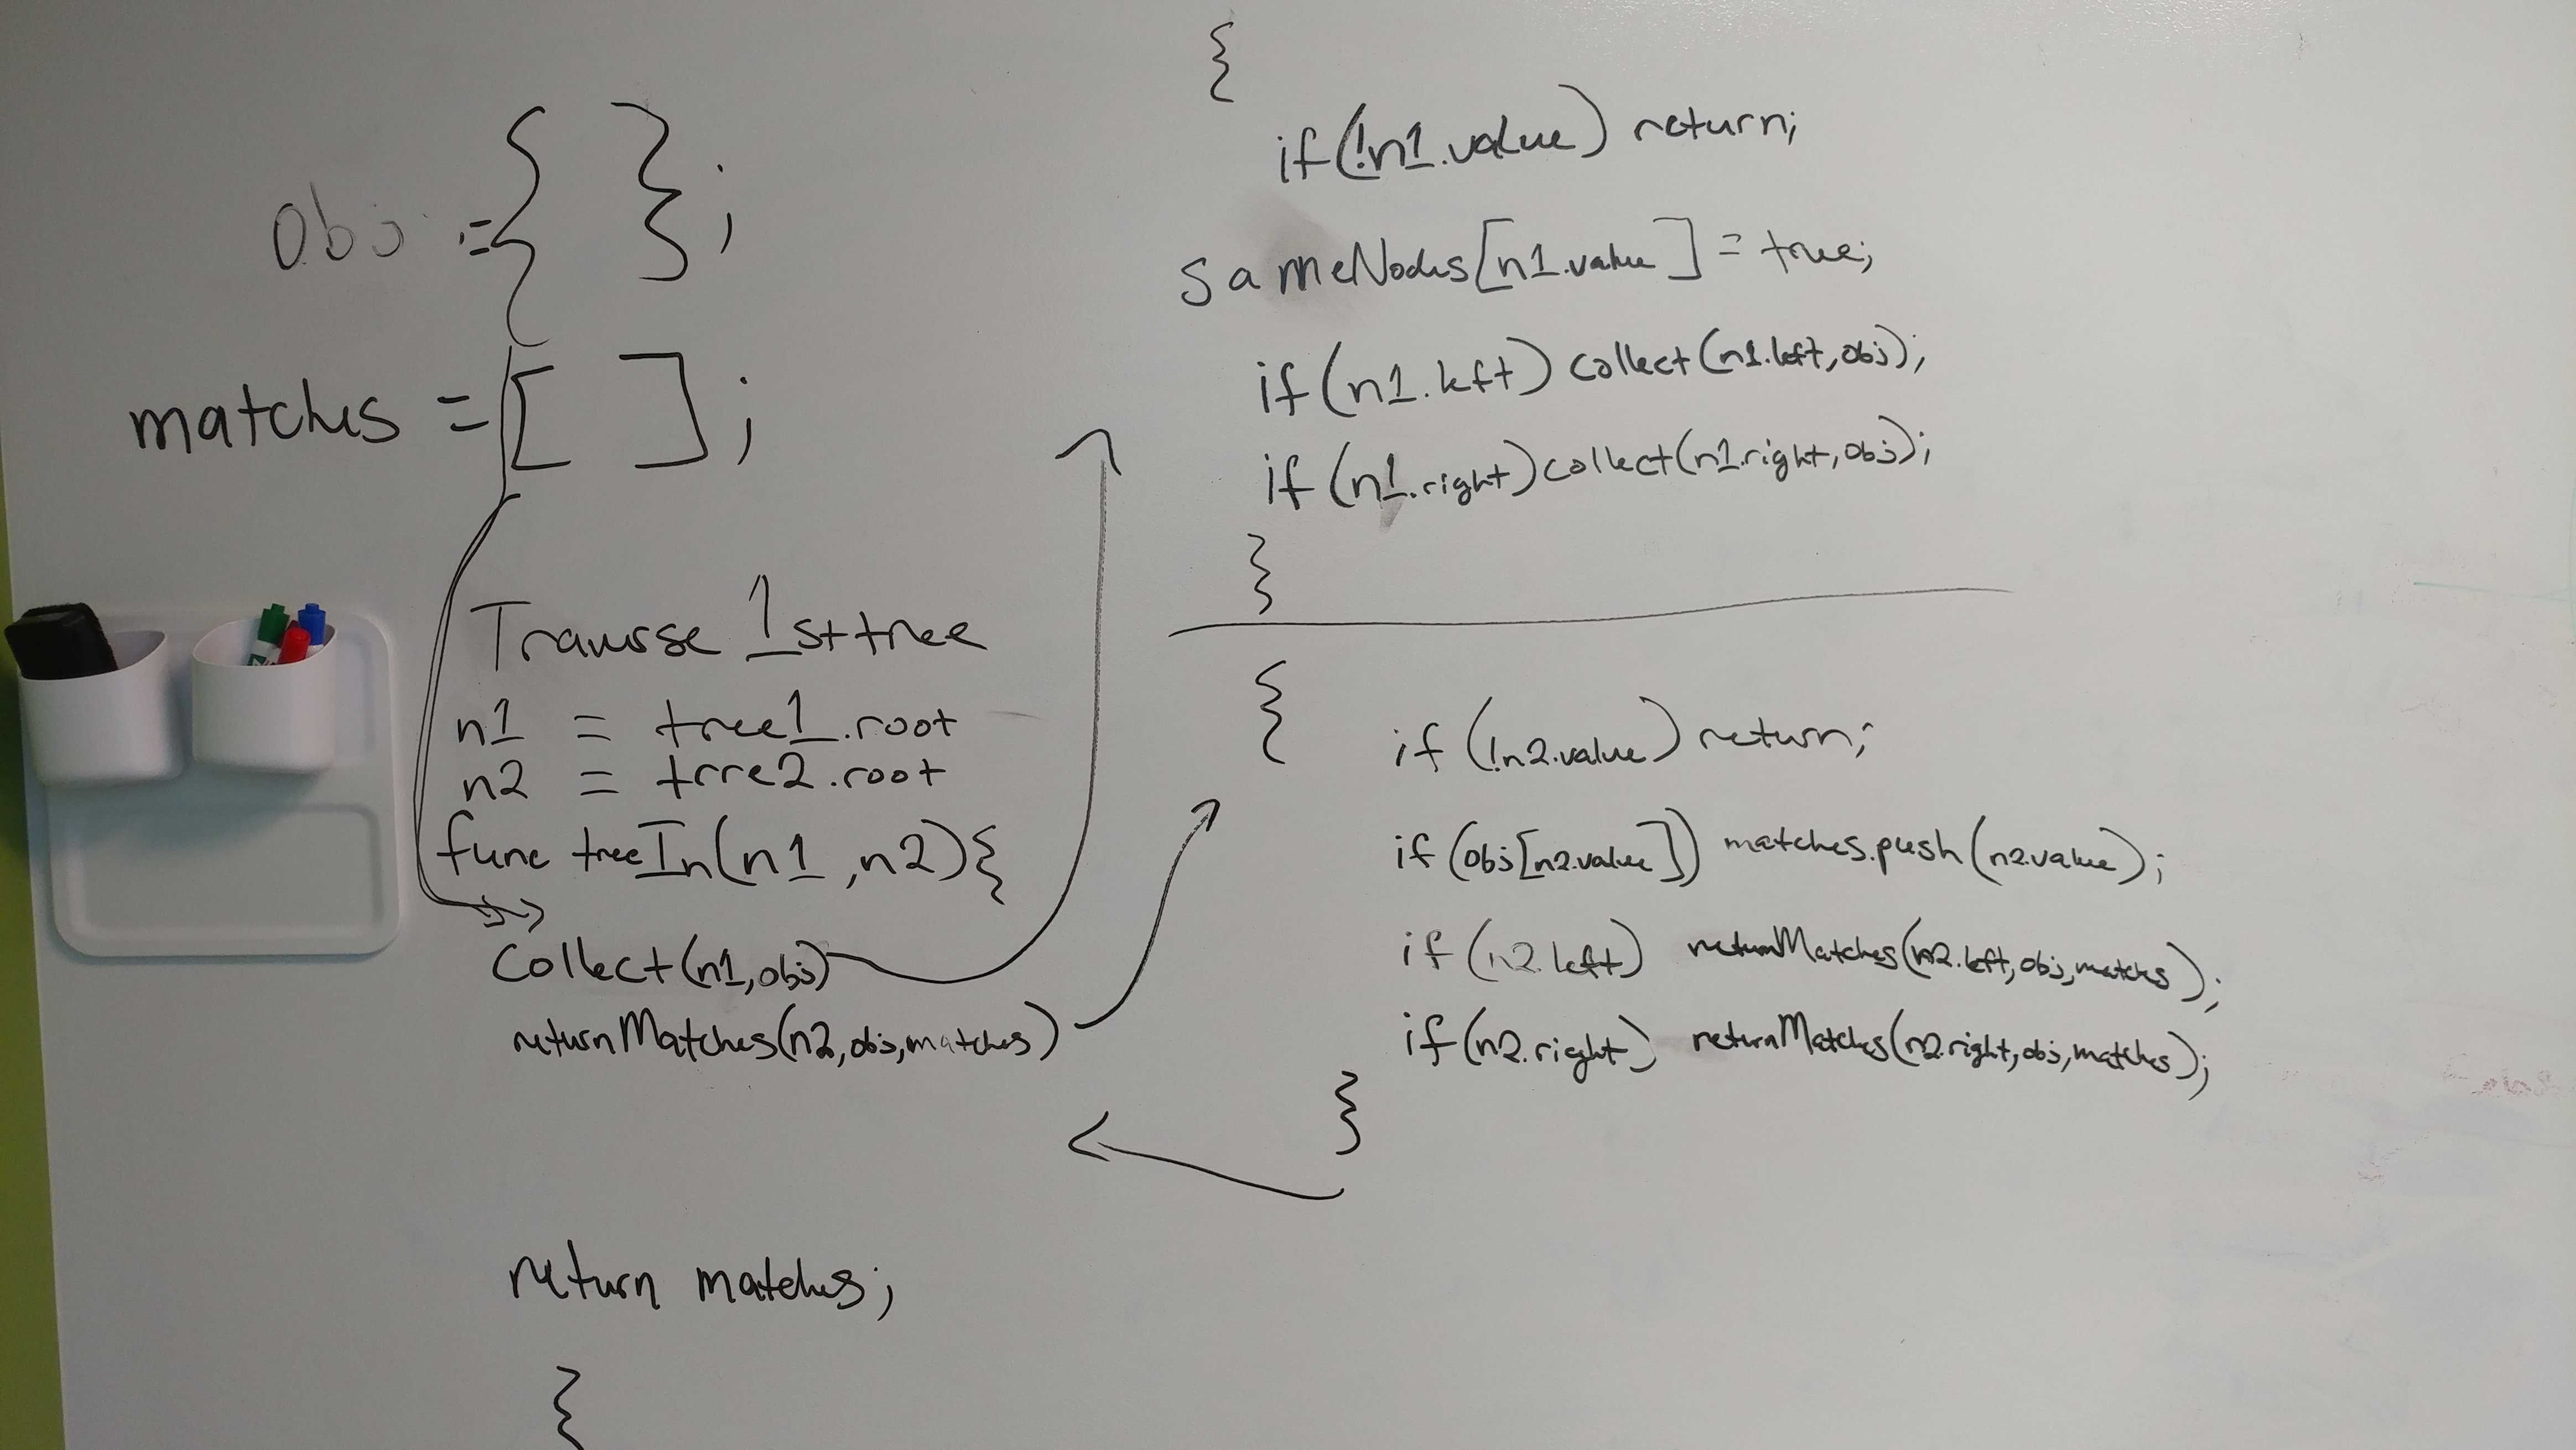 obj = { };
matches = [ ];
Traverse 1st tree
n1 = tree1.root
n2 = trre2.root
func treeIn(n1, n2){
Collect(n1, obj)
returnMatches(n2, obj, matches)
return matches;
}
{
if(!n1.value) return;
sameNodes[n1.value] = true;
if(n1.left) collect(n1.left, obj);
if(n1.right) collect(n1.right, obj);
}
{
if(!n2.value) return;
if(obj[n2.value]) matches.push(n2.value);
if(n2.left) returnMatches(n2.left, obj, matches);
if(n2.right) returnMatches(n2.right, obj, matches);
}